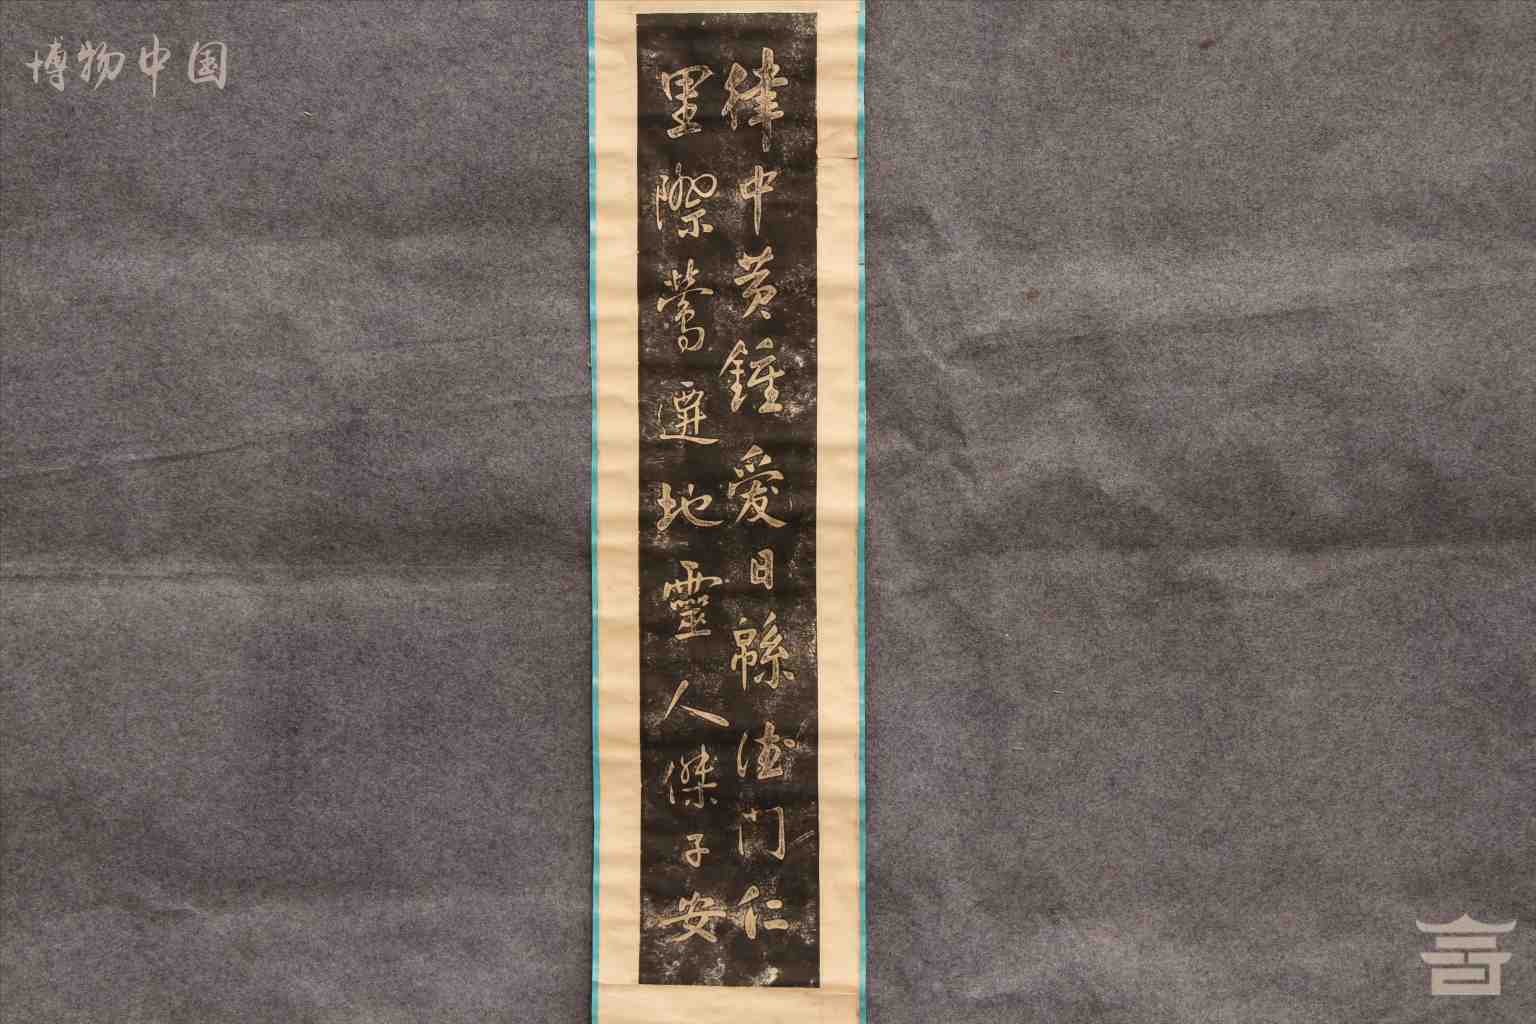 博物中国
律中黄鍾愛日緜德門仁
里際鶯遷地靈人傑子安